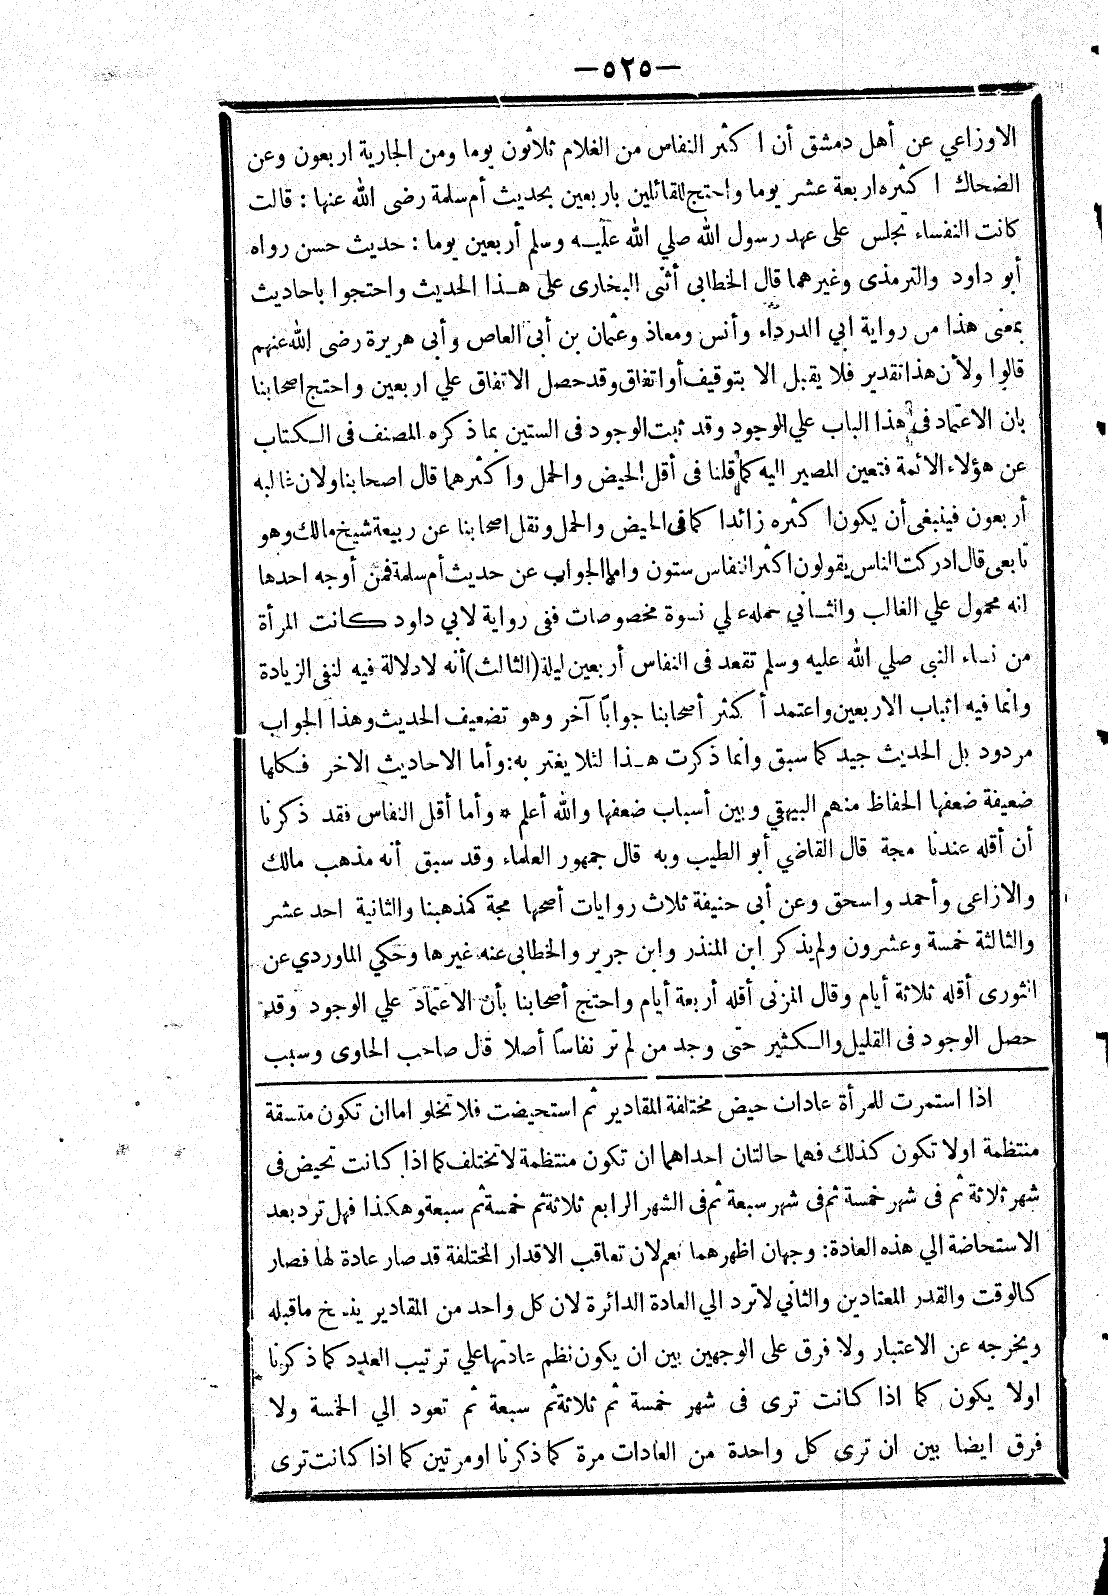 —٥٢٥—
الاوزاعي عن أهل دمشق أن اكثر النفاس من الغلام ثلاثون يوما ومن الجارية اربعون وعن
الضحاك اكثره اربعة عشر يوما واحتج للقائلين باربعين بحديث أم سلمة رضى الله عنها : قالت
كانت النفساء تجلس على عهد رسول الله صلي الله عليه وسلم أربعين يوما : حديث حسن رواه
أبو داود والترمذى وغيرهما قال الخطابى أثنى البخارى على هذا الحديث واحتجوا باحاديث
بمعنى هذا من رواية ابي الدرداء وأنس ومعاذ وعثمان بن أبى العاص وأبى هريرة رضى الله عنهم
قالوا ولأن هذا تقدير فلا يقبل الا بتوقيف أو اتفاق وقد حصل الاتفاق علي اربعين واحتج اصحابنا
بان الاعتماد فى هذا الباب علي الوجود وقد ثبت الوجود فى الستين بما ذكره المصنف فى الكتاب
عن هؤلاء الائمة فتعين المصير اليه كما قلنا فى أقل الحيض والحمل واكثرهما قال اصحابنا ولان غالبه
أربعون فينبغى أن يكون اكثره زائدا كما فى الحيض والحمل ونقل اصحابنا عن ربيعة شيخ مالك وهو
تابعى قال ادركت الناس يقولون اكثر النفاس ستون واما الجواب عن حديث أم سلمة فمن أوجه احدها
انه محمول علي الغالب والثاني حمله علي نسوة مخصوصات ففى رواية لابي داود كانت المرأة
من نساء النبى صلي الله عليه وسلم تقعد فى النفاس أربعين ليلة (الثالث) أنه لا دلالة فيه لنفى الزيادة
وانما فيه اثبات الاربعين واعتمد أكثر أصحابنا جوابًا آخر وهو تضعيف الحديث وهذا الجواب
مردود بل الحديث جيد كما سبق وانما ذكرت هذا لئلا يغتر به : وأما الاحاديث الاخر فكلها
ضعيفة ضعفها الحفاظ منهم البيهقي وبين أسباب ضعفها والله أعلم * وأما أقل النفاس فقد ذكرنا
أن أقله عندنا مجة قال القاضي أبو الطيب وبه قال جمهور العلماء وقد سبق أنه مذهب مالك
والازاعى وأحمد واسحق وعن أبى حنيفة ثلاث روايات أصحها مجة كمذهبنا والثانية احد عشر
والثالثة خمسة وعشرون ولم يذكر ابن المنذر وابن جرير والخطابى عنه غيرها وحكي الماوردي عن
الثورى أقله ثلاثة أيام وقال المزنى أقله أربعة أيام واحتج أصحابنا بأن الاعتماد علي الوجود وقد
حصل الوجود فى القليل والكثير حتى وجد من لم تر نفاسًا أصلا قال صاحب الحاوى وسبب
اذا استمرت للمرأة عادات حيض مختلفة المقادير ثم استحيضت فلا تخلو اما ان تكون متسقة
منتظمة اولا تكون كذلك فهما حالتان احداهما ان تكون منتظمة لا تختلف كما اذا كانت تحيض فى
شهر ثلاثة ثم فى شهر خمسة ثم فى شهر سبعة ثم فى الشهر الرابع ثلاثة ثم خمسة ثم سبعة وهكذا فهل ترد بعد
الاستحاضة الي هذه العادة : وجهان اظهرهما نعم لان تعاقب الاقدار المختلفة قد صار عادة لها فصار
كالوقت والقدر المعتادين والثاني لا ترد الي العادة الدائرة لان كل واحد من المقادير ينسخ ما قبله
ويخرجه عن الاعتبار ولا فرق على الوجهين بين ان يكون نظم عادتها علي ترتيب العدد كما ذكرنا
اولا يكون كما اذا كانت ترى فى شهر خمسة ثم ثلاثة ثم سبعة ثم تعود الي الخمسة ولا
فرق ايضا بين ان ترى كل واحدة من العادات مرة كما ذكرنا او مرتين كما اذا كانت ترى